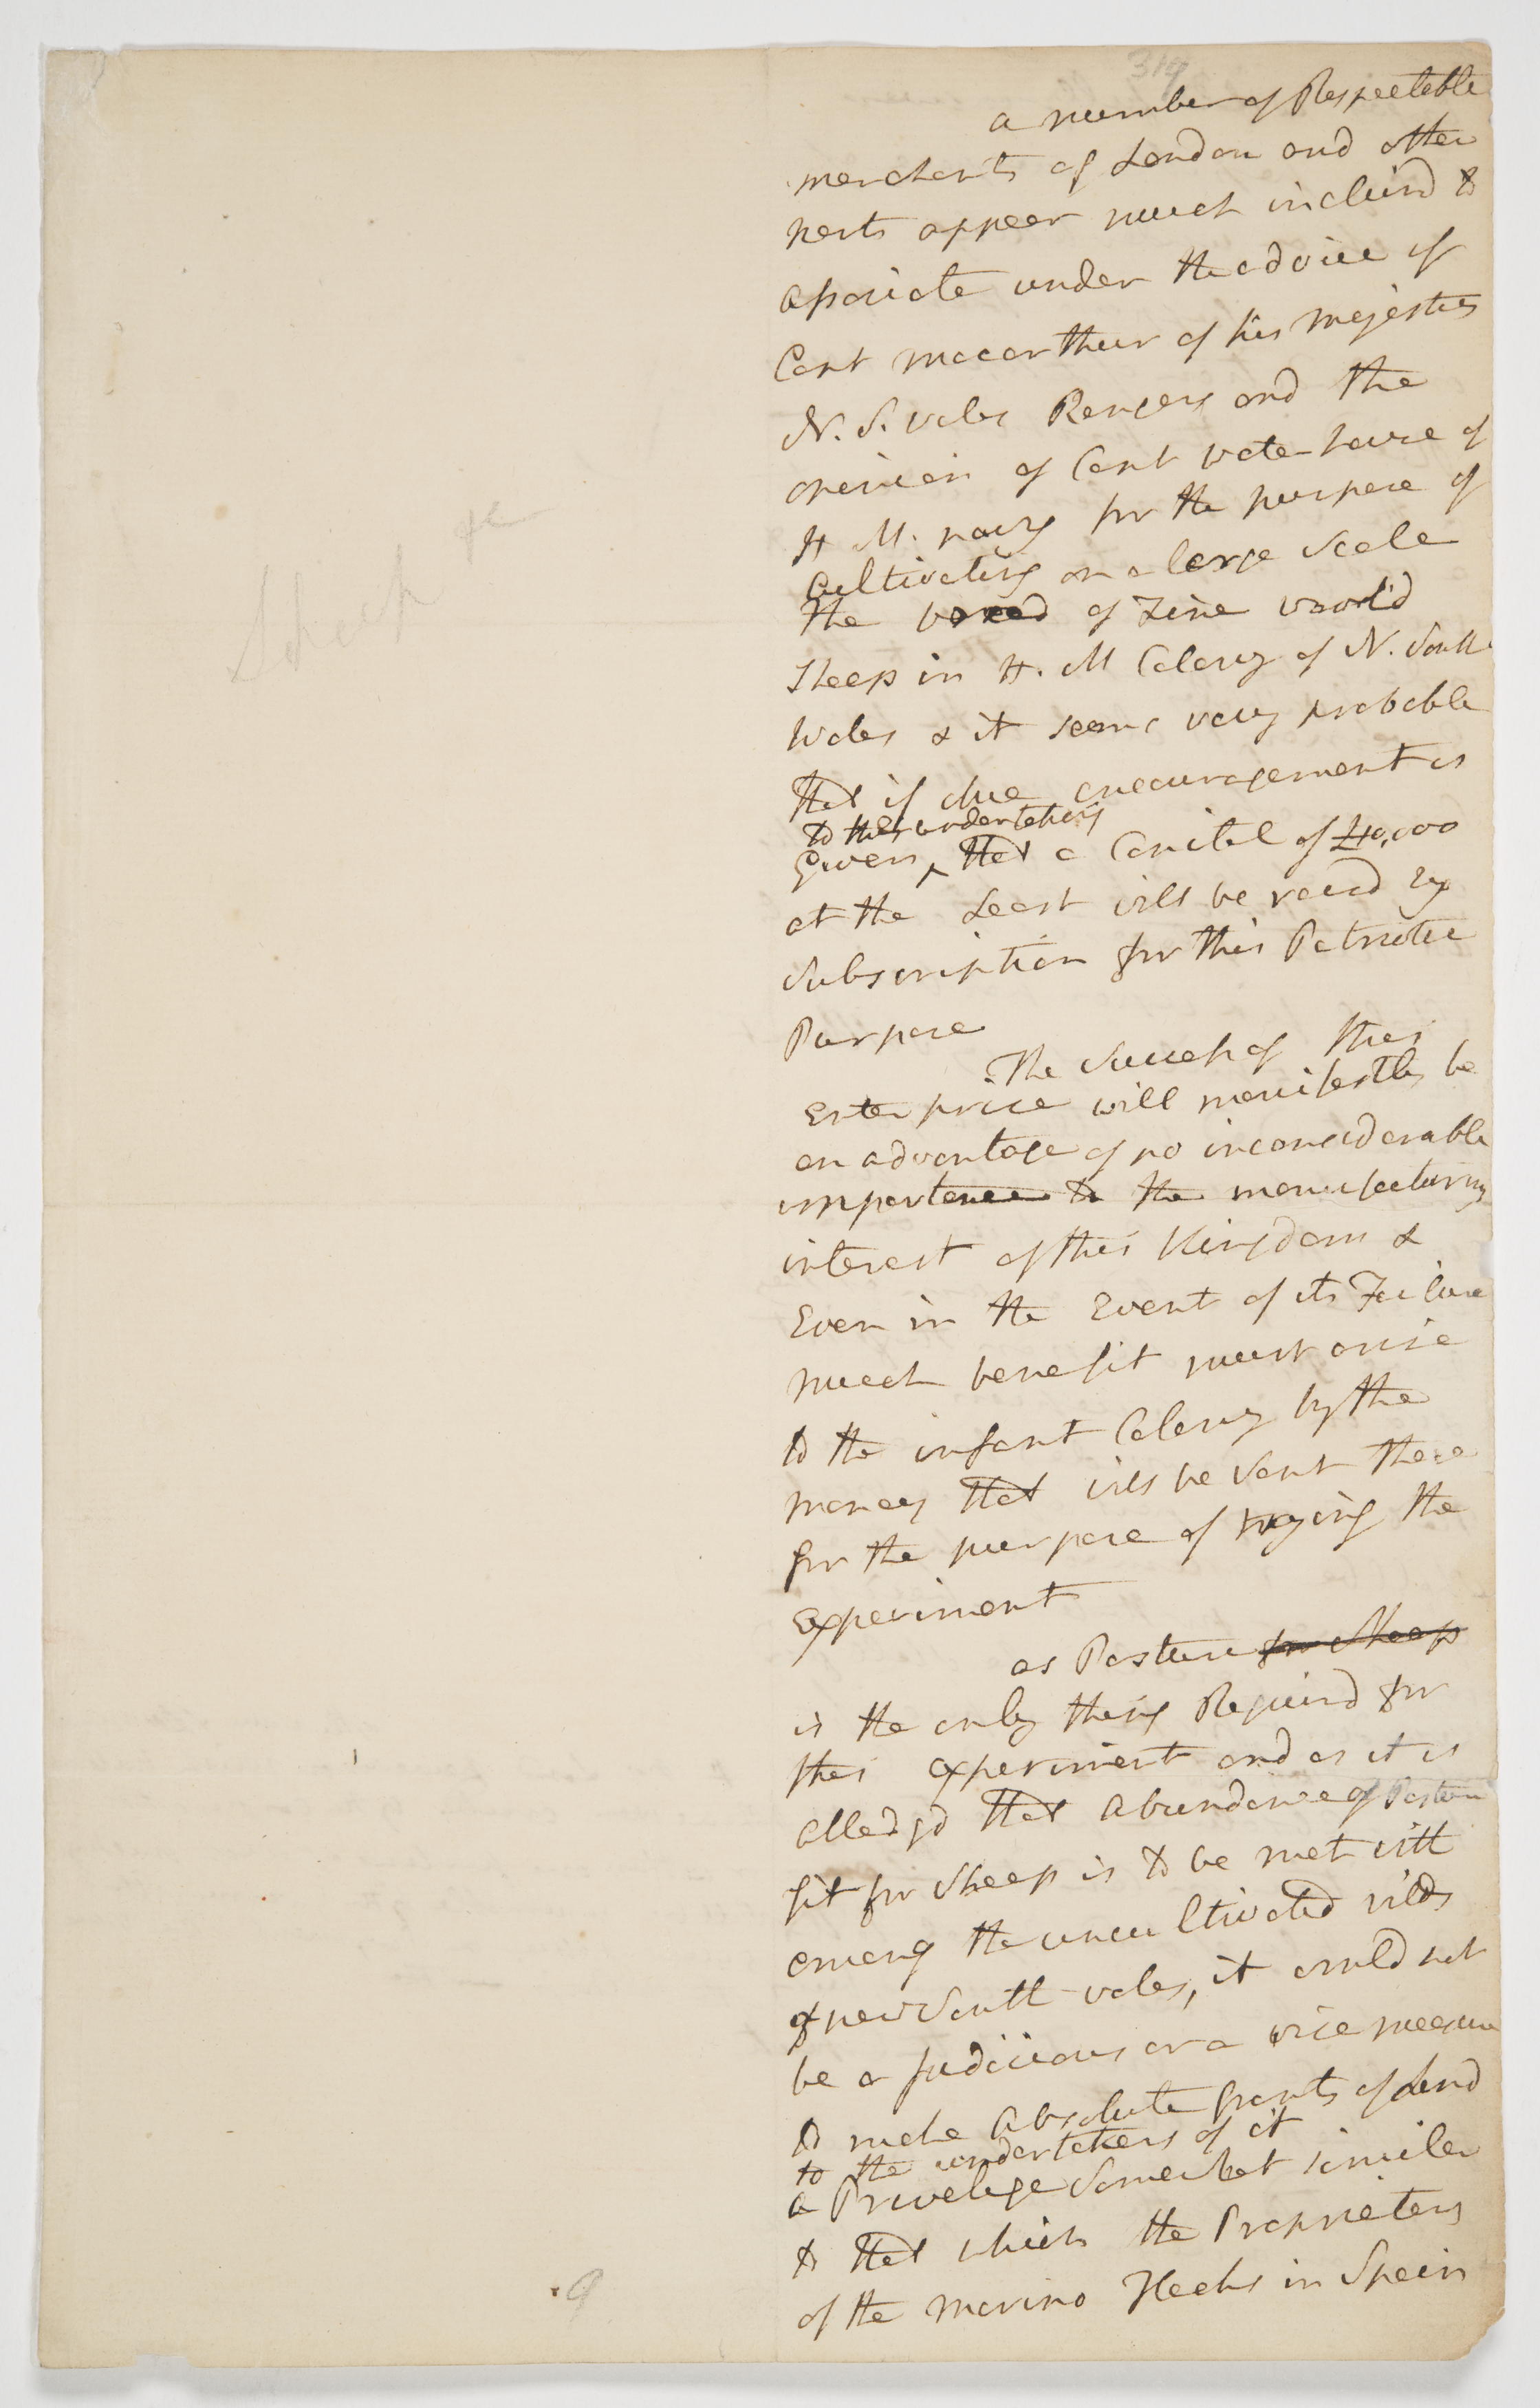 319
a number of Respectable
merchants of London and other
Ports appear much inclind to
associate under the advice of
Capt Macarthur of his majesties
N. S. Wales Rangers and the
opinion of Capt Waterhouse of
H M. navy for the purpose of
Cultivating on a large Scale
the breed of Fine woold
Sheep in H. M Colony of N. South
Wales & it seems very probable
that if due encouragement is
to the undertaking
Given ^ that a Capital of £10,000
at the Least will be raisd by
Subscription for this Patriotic
Purpose
The Success of this
Enterprise will manifestly be
an advantage of no inconsiderable
importance to the manufacturing
interest of this Kingdom &
Even in the Event of its Failure
much benefit must arise
to the infant Colony by the
money that will be Sent there
for the purpose of trying the
Experiment
as Pasture for Sheep
is the only thing Requird for
this experiment and as it is
alledgd that abundance of Pasture
fit for Sheep is to be met with
among the uncultivated wilds
of new South wales, it could not
be a Judicious or a wise measure
to make absolute grants of Land
to the undertakers of it
a Privelege Somewhat similar
to that which the Proprietors
of the Merino Flocks in Spain
Sheep &c
9